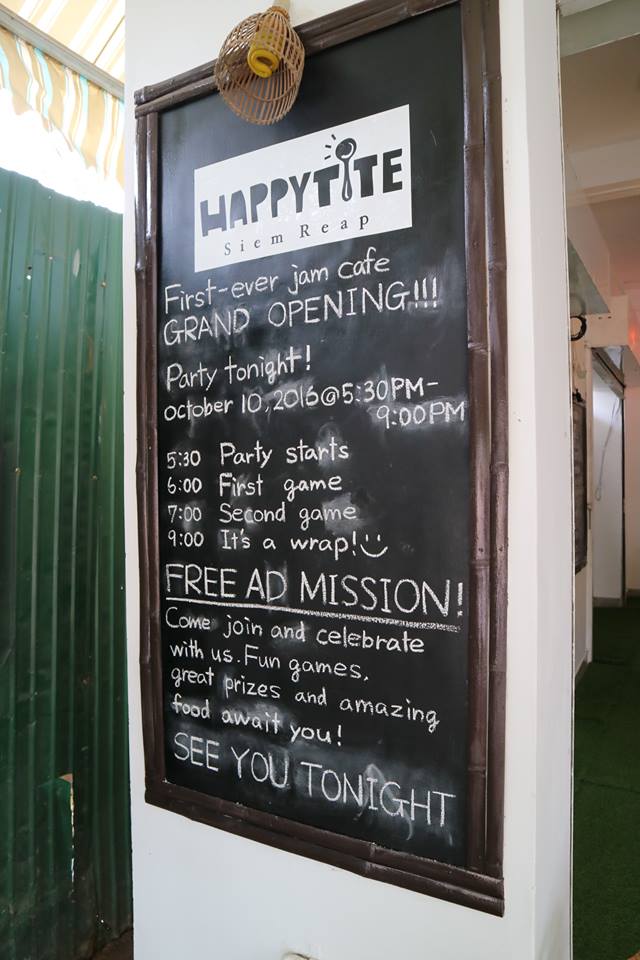 HAPPYTITE
Siem Reap
First-ever jam cafe
GRAND OPENING!!!
Party tonight!
october 10, 2016@5:30PM-
9:00PM
5:30 Party starts
6:00 First game
7:00 Second game
9:00 It's a wrap!
FREE AD MISSION!
Come join and celebrate
with us. Fun games,
great prizes and amazing
food await you!
SEE YOU TONIGHT